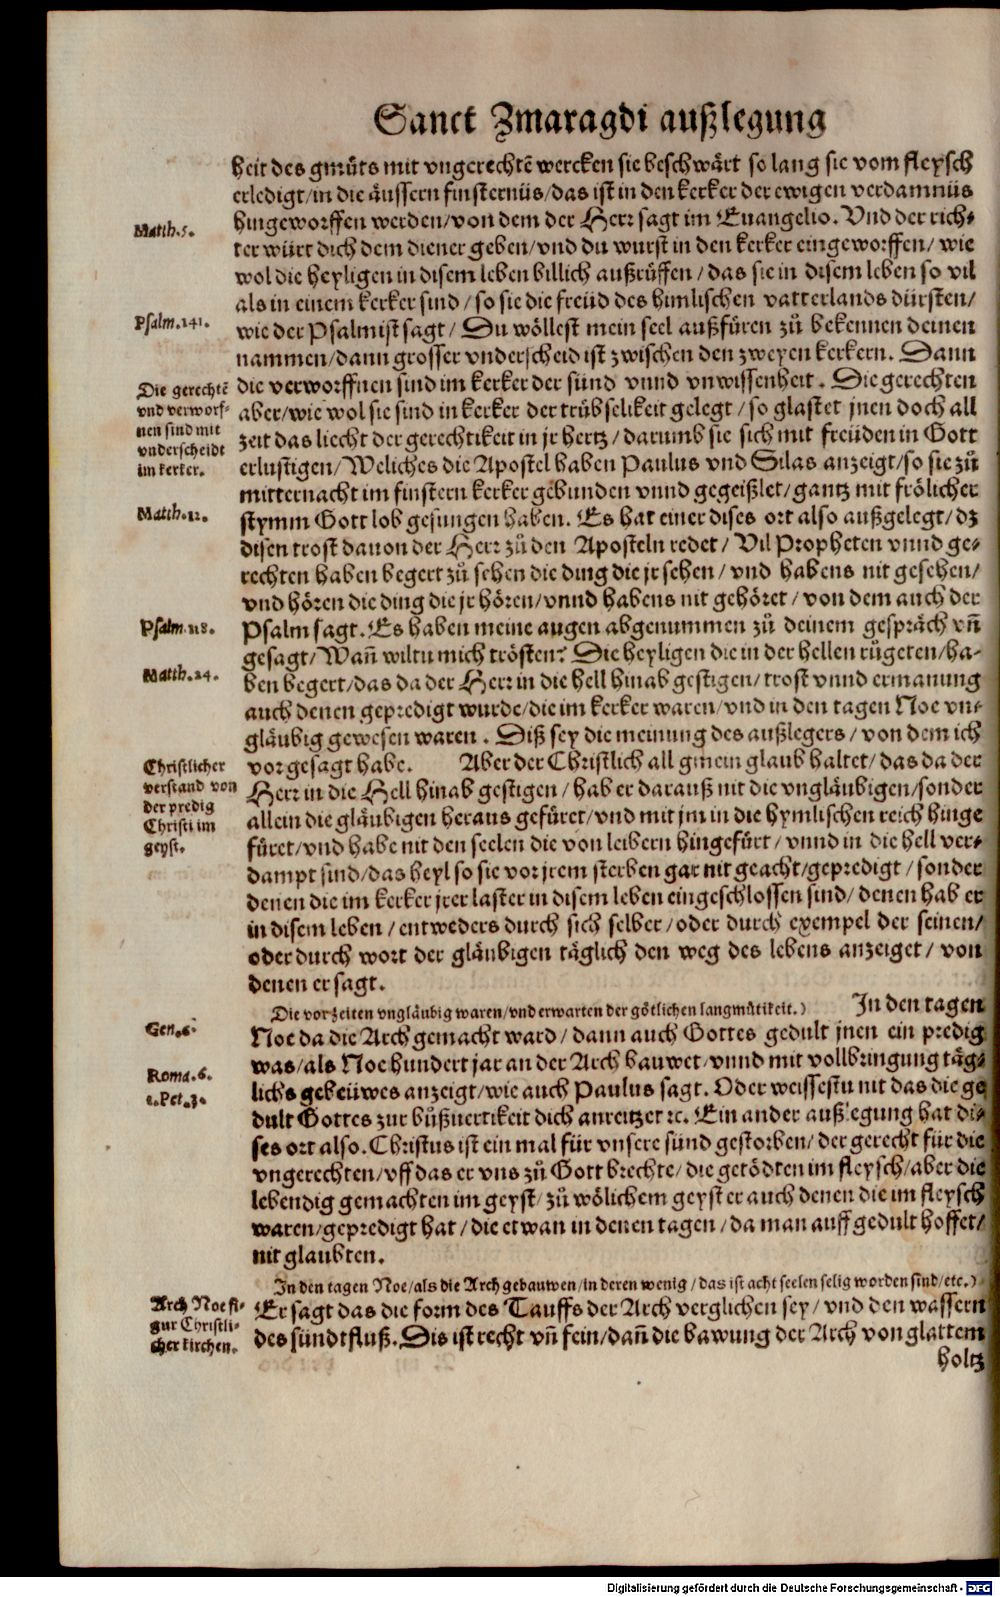 Sanct Zmaragdi außlegung
heit des gmůts mit vngerechtē wercken sie beschwärt so lang sie vom fleysch
erledigt/in die äussern finsternüs/das ist in den kerker der ewigen verdamnüs
hingeworffen werden/von dem der Herr sagt im Euangelio. Vnd der rich-
Matth.5.
ter würt dich dem diener geben/vnd du wurst in den kerker eingeworffen/ wie
wol die heyligen in disem leben billich außrüffen/das sie in disem leben so vil
als in einem kerker sind/so sie die freüd des himlischen vatterlands dürsten/
Psalm.141.
wie der Psalmist sagt/ Du wöllest mein seel außfüren zů bekennen deinen
nammen/dann grosser vnderscheid ist zwischen den zweyen kerkern. Dann
Die gerechtē
vnd verworf-
nen sind mit
vnderscheidt
im kerker.
die verworffnen sind im kerker der sünd vnnd vnwissenheit. Die gerechten
aber/wie wol sie sind in kerker der trübselikeit gelegt/so glastet jnen doch all
zeit das liecht der gerechtikeit in jr hertz/darumb sie sich mit freüden in Gott
erlustigen/Weliches die Apostel haben Paulus vnd Silas anzeigt/so sie zů
mitternacht im finstern kerker gebunden vnnd gegeißlet/gantz mit frölicher
Matth.12.
stymm Gott lob gesungen haben. Es hat einer dises ort also außgelegt/dz
disen trost dauon der Herr zů den Aposteln redet/ Vil Propheten vnnd ge-
rechten haben begert zů sehen die ding die jr sehen/ vnd habens nit gesehen/
vnd hören die ding die jr hören/vnnd habens nit gehöret/von dem auch der
Psalm.118.
Psalm sagt. Es haben meine augen abgenummen zů deinem gespräch vn̄
gesagt/Wan̄ wiltu mich trösten? Die heyligen die in der hellen růgeten/ha-
Matth.24.
ben begert/das da der Herr in die hell hinab gestigen/trost vnnd ermanung
auch denen gepredigt wurde/die im kerker waren/vnd in den tagen Noe vn-
gläubig gewesen waren. Diß sey die meinung des außlegers/von dem ich
Christlicher
verstand von
der predig
Christi im
geyst.
vor gesagt habe. Aber der Christlich all gmein glaub haltet/das da der
Herr in die Hell hinab gestigen/hab er darauß nit die vngläubigen/sonder
allein die gläubigen heraus gefüret/vnd mit jm in die hymlischen reich hinge
füret/vnd habe nit den seelen die von leibern hingefürt/vnnd in die hell ver-
dampt sind/das heyl so sie vor jrem sterben gar nit geacht/gepredigt/sonder
denen die im kerker jrer laster in disem leben eingeschlossen sind/denen hab er
in disem leben/entweders durch sich selber/oder durch exempel der seinen/
oder durch wort der gläubigen täglich den weg des lebens anzeiget/von
denen er sagt.
Die vorzeiten vngläubig waren/vnd erwarten der götlichen langmůtikeit.) In den tagen
Gen.6.
Noe da die Arch gemacht ward/dann auch Gottes gedult jnen ein predig
was/als Noe hundert jar an der Arch bauwet/vnnd mit vollbringung täg-
Roma.6.
1.Pet.3.
lichs gebeüwes anzeigt/wie auch Paulus sagt. Oder weissestu nit das die ge
dult Gottes zur bůßuertikeit dich anreitzet ꝛc. Ein ander außlegung hat di-
ses ort also. Christus ist ein mal für vnsere sünd gestorben/der gerecht für die
vngerechten/vff das er vns zů Gott brechte/die getödten im fleysch/aber die
lebendig gemachten im geyst/zů wölichem geyst er auch denen die im fleysch
waren/gepredigt hat/die etwan in denen tagen/da man auff gedult hoffet/
nit glaubten.
In den tagen Noe/als die Arch gebauwen/in deren wenig/das ist acht seelen selig worden sind/etc.)
Arch Noe fi-
gur Christli-
cher kirchen.
Er sagt das die form des Tauffs der Arch verglichen sey/vnd den wassern
des sündtfluß. Dis ist recht vn̄ fein/dan̄ die bawung der Arch von glattem
holtz
Digitalisierung gefördert durch die Deutsche Forschungsgemeinschaft - DFG